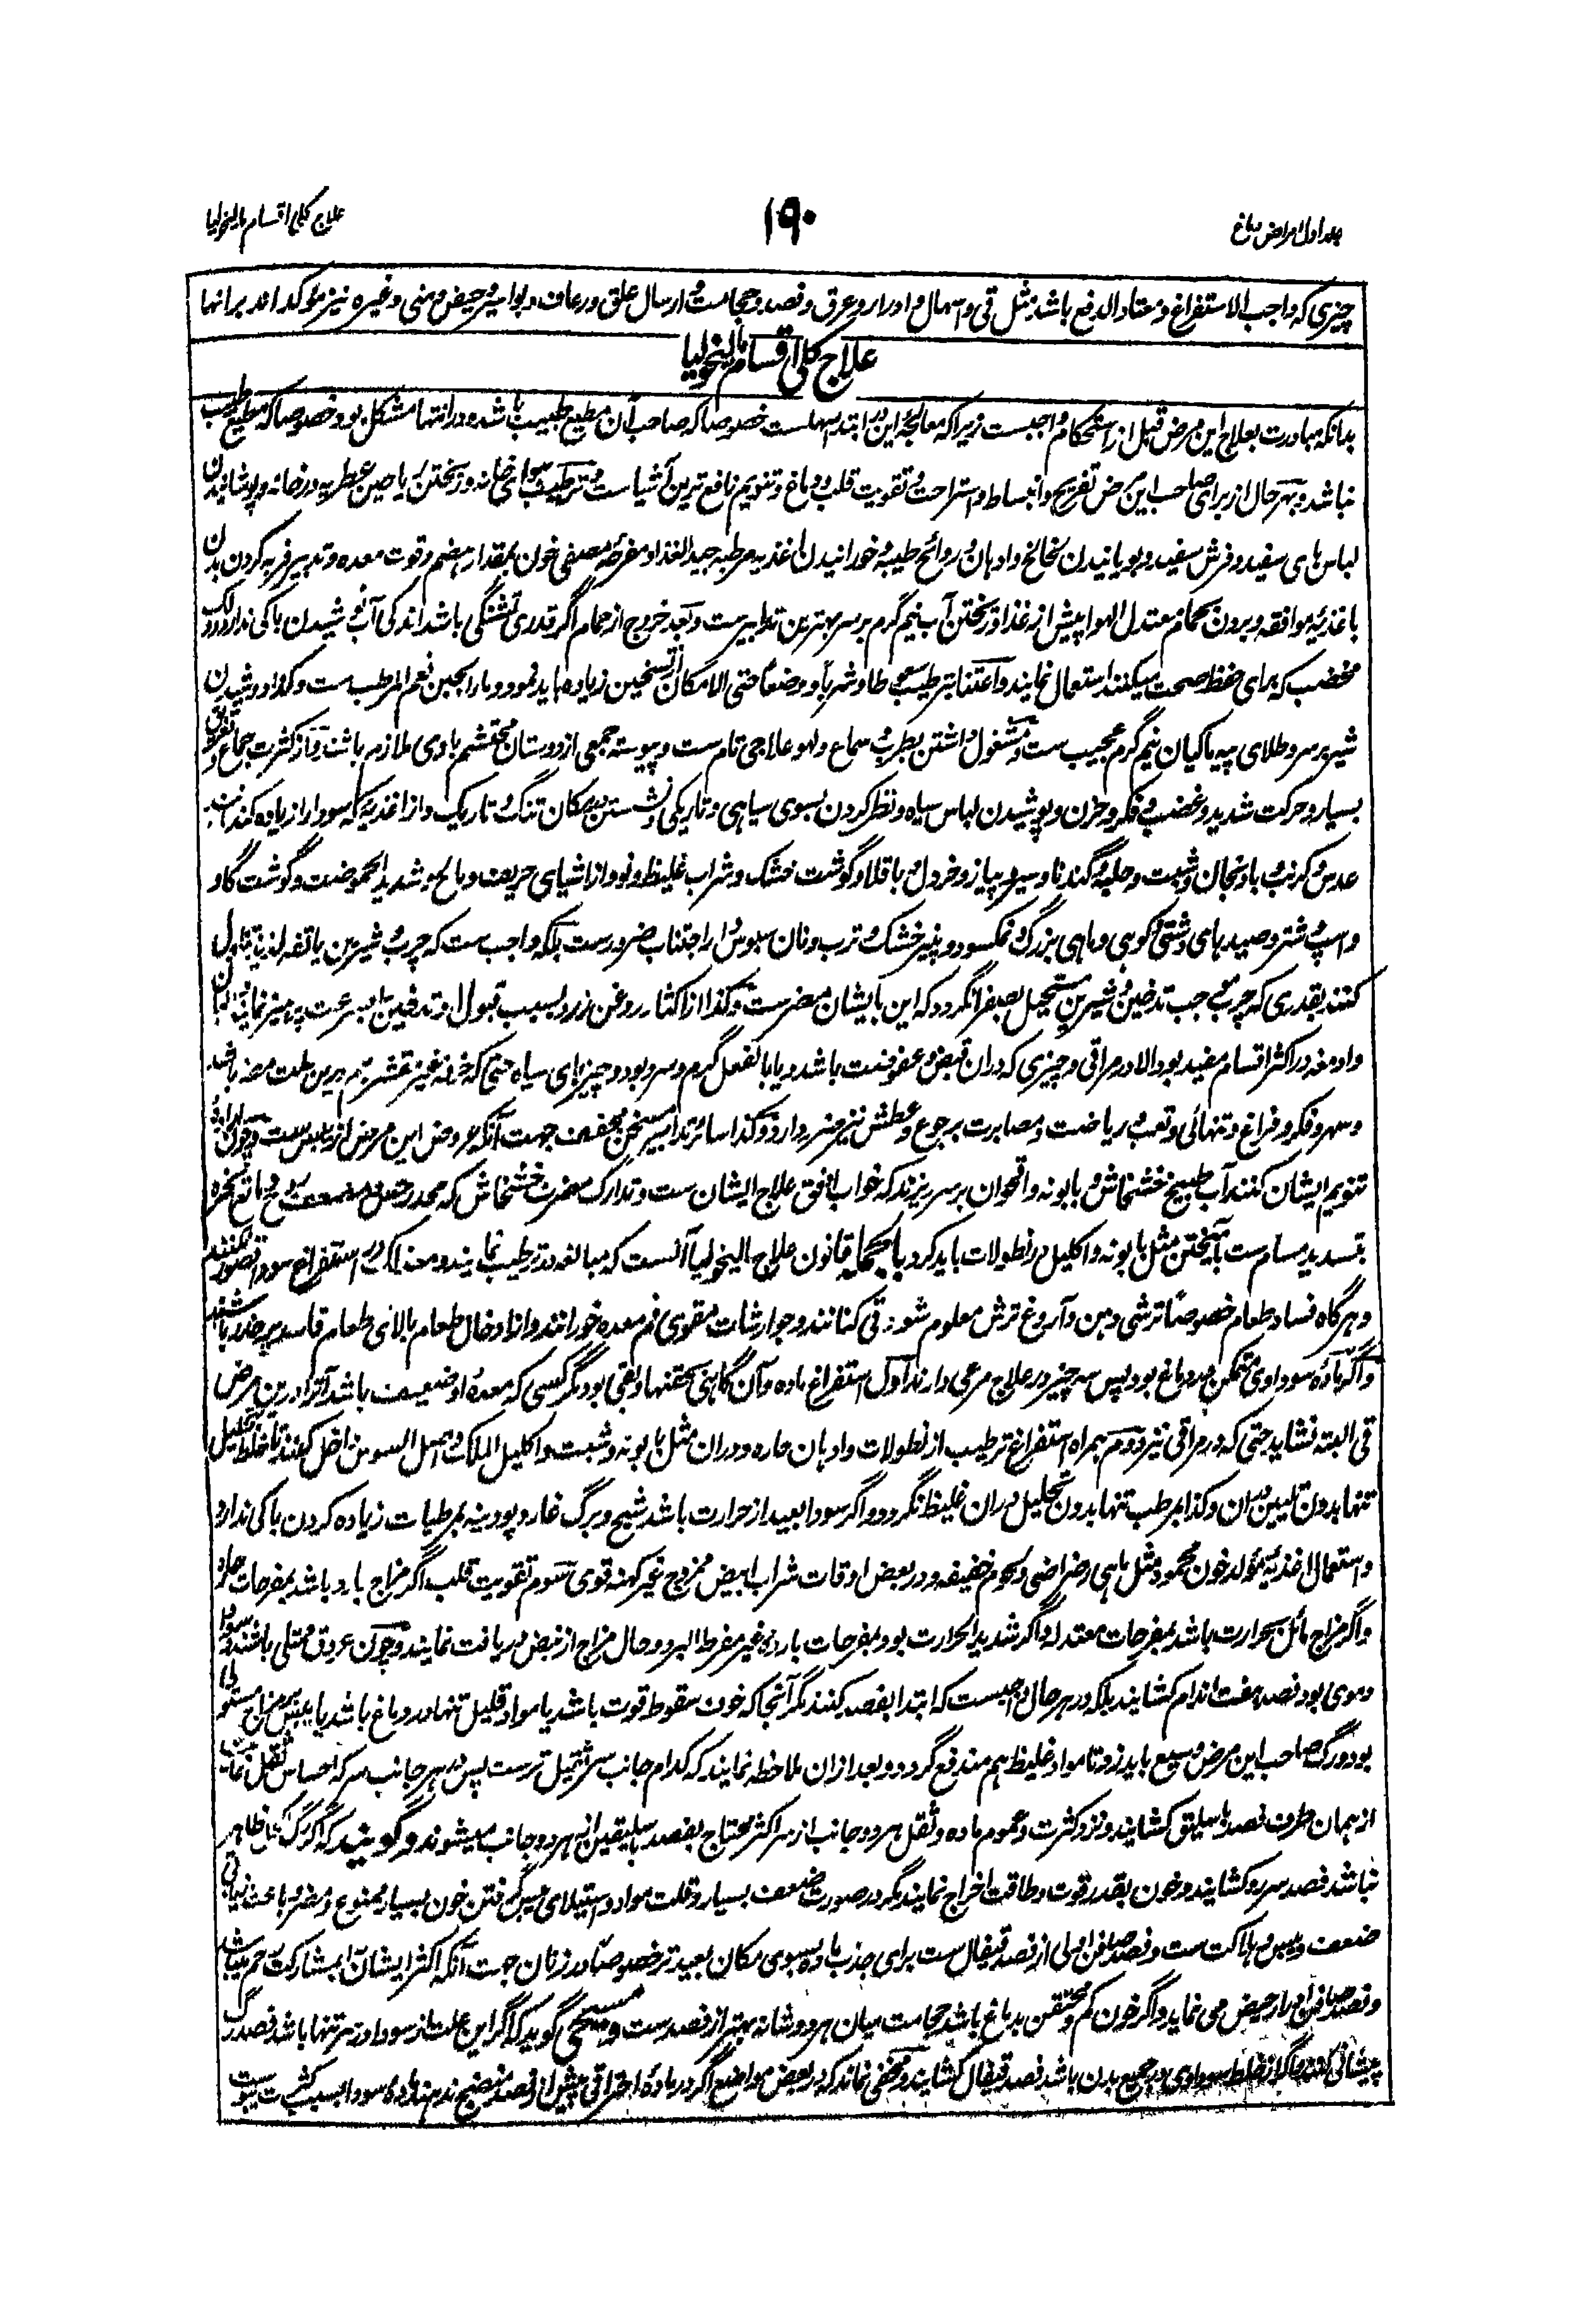 جلد اول امراض دماغ
۱۹۰
علاج کلی اقسام مالیخولیا
چیزی که واجب الاستفراغ و معتاد الدفع باشد مثل قی و اسهال و ادرار و عرق و فصد و حجامت و ارسال علق و رعاف و بواسیر و حیض و منی و غیره نیز مؤکد اند برانها
علاج کلی اقسام مالیخولیا
بدانکه مبادرت بعلاج این مرض قبل از استحکام واجبست زیرا که معالجهٔ این در ابتدا سهلست خصوصا که صاحب آن مطیع طبیب باشد و در انتها مشکل بود خصوصا که مطیع طبیب
نباشد و بهر حال از برای صاحب این مرض تفریح و انبساط و استراحت و تقویت قلب و دماغ و تنویم نافع ترین اشیاست و ترطیب هوای خانه و ریختن ریاحین عطریه در خانه و پوشانیدن
لباس های سفید و فرش سفید و بویانیدن لخالخ و ادهان و روائح طیبه و خورانیدن اغذیه مرطبه جید الغذا و مفرحه مصفی خون بمقدار هضم و قوت معده و تدبیر فربه کردن بدن
باغذیهٔ موافقه و بردن بحمام معتدل الهوا پیش از غذا و ریختن آب نیم گرم بر سر بهترین تدابیرست و بعد خروج از حمام اگر قدری تشنگی باشد اندکی آب نوشیدن باکی ندارد و دلک
مخضب که برای حفظ صحت میکنند استعمال نمایند و اعتنا بترطیب سعوطا و شربا و وضعا حتی الامکان از تسخین زیاده باید نمود و ماء الجبن نعم المرطب ست و کذا دوشیدن
شیر بر سر و طلای پیه ماکیان نیم گرم عجیب ست و مشغول داشتن بطرب و سماع و لهو علاجی تام ست و پیوسته جمعی از دوستان محتشم با وی ملازم باشند و از کثرت جماع و تعریق
بسیار و حرکت شدید و غضب و فکر و حزن و پوشیدن لباس سیاه و نظر کردن بسوی سیاهی و تاریکی و نشستن بمکان تنگ و تاریک و از اغذیه که سودا را زیاده کند مثل
عدس و کرنب و بادنجان و شبت و حلبه و گندنا و سیر و پیاز و خردل و باقلا و گوشت خشک و شراب غلیظ و نو و از اشیای حریف و مالح و شدید الحموضت و گوشت گاو
و اسپ و شتر و صیدهای دشتی و کوهی و ماهی بزرگ و نمکسود و پنیر خشک و ترب و نان سبوس دار اجتناب ضرورست بلکه واجب ست که چرب و شیرین یا تفه لذیذ تناول
کنند بقدری که چرب موجب تدخین و شیرین مستحیل بصفرا نگردد که این بایشان مضرست و کذا از اکثار روغن زرد بسبب قبول او تدخین را بسرعت پرهیز نمایند
و ادمغه در اکثر اقسام مفید بود الا در مراقی و چیزی که دران قبض و عفوصت باشد و یا بالفعل گرم و سرد بود و چیزهای سیاه حتی که خرفه غیر مقشر هم درین علت مضر باشد
و سهر و فکر و فراغ و تنهائی و تعب و ریاضت و مصابرت بر جوع و عطش نیز ضرر دارد و کذا سائر تدابیر مسخن و مجفف جهت آنکه عروض این مرض از یبس ست و چون اراده
تنویم ایشان کنند آب طبیخ خشخاش و بابونه و اقحوان بر سر ریزند که خواب اوفق علاج ایشان ست و تدارک مضرت خشخاش که مخدر و مانع بخره
بتسدید مسام ست بآمیختن مثل بابونه و اکلیل در نطولات باید کرد بالجمله قانون علاج مالیخولیا آنست که مبالغه در ترطیب نمایند و معذلک در استفراغ سودا قصور نکنند
و هرگاه فساد طعام خصوصا ترشی دهن و آروغ ترش معلوم شود قی کنانند و جوارشات مقوی فم معده خورانند و از ادخال طعام بالای طعام فاسد پر حذر باشند
و اگر ماده سوداوی متمکن در دماغ بود پس سه چیز در علاج مرعی دارند اول استفراغ ماده و آن گاهی بحقنها و بقی بود مگر کسی که معدهٔ او ضعیف باشد آنرا درین مرض
قی البته نشاید حتی که در مراقی نیز دوم همراه استفراغ ترطیب از نطولات و ادهان حاره و دران مثل بابونه و شبت و اکلیل الملک و اصل السوس داخل کنند تا خلط بتحلیل
تنها بدون تلیین دران و کذا مرطب تنها بدون تحلیل دران غلیظ نگردد و اگر سودا بعید از حرارت باشد شیح و برگ غار و پودینه بمرطبات زیاده کردن باکی ندارد
و استعمال اغذیهٔ مولد خون محمود مثل ماهی رضراضی و لحوم خفیفه و در بعض اوقات شراب ابیض ممزوج غیر کهنه قوی سوم تقویت قلب اگر مزاج بارد باشد بمفرحات حاره
و اگر مزاج مائل بحرارت باشد بمفرحات معتدله و اگر شدید الحرارت بود بمفرحات بارده غیر مفرط البرد و حال مزاج از نبض دریافت نمایند و چون عروق ممتلی باشند و سودا
دموی بود فصد هفت اندام کشایند بلکه در هر حال واجبست که ابتدا بفصد کنند مگر آنجا که خوف سقوط قوت باشد یا مواد قلیل تنها در دماغ باشد یا یبس بر مزاج مستولی
بود و رگ صاحب این مرض وسیع باید زد تا مواد غلیظ هم مندفع گردد و بعد ازان ملاحظه نمایند که کدام جانب سر ثقیل ترست پس در هر جانب سر که احساس ثقل نمایند
از همان طرف فصد باسلیق کشایند و نزد کثرت و عموم ماده و ثقل هر دو جانب از سر اکثر محتاج بفصد باسلیقین از هر دو جانب میشوند و گویند که اگر رگ ظاهر
نباشد فصد سرو کشایند و خون بقدر قوت و طاقت اخراج نمایند مگر در صورت ضعف بسیار و قلت مواد و استیلای یبس گرفتن خون بسیار ممنوع و مضر و باعث زیادتی
ضعف و یبس و هلاکت ست و فصد صافن اولی از فصد قیفال ست برای جذب ماده بسوی مکان بعیدتر خصوصا در زنان جهت آنکه اکثر ایشان را بمشارکت رحم میباشد
و فصد صافن ادرار حیض می نماید و اگر خون کم و محتقن بدماغ باشد حجامت میان هر دو شانه بهتر از فصد ست و مسیحی گوید که اگر این علت از سودا در سر تنها باشد فصد رگ
پیشانی کنند و اگر از خلط سوداوی در جمیع بدن باشد فصد قیفال کشایند و مخفی نماند که در بعض مواضع اگر در مادهٔ احتراقی پیش از فصد منضج ندهند مادهٔ سودا بسبب کثرت یبوست